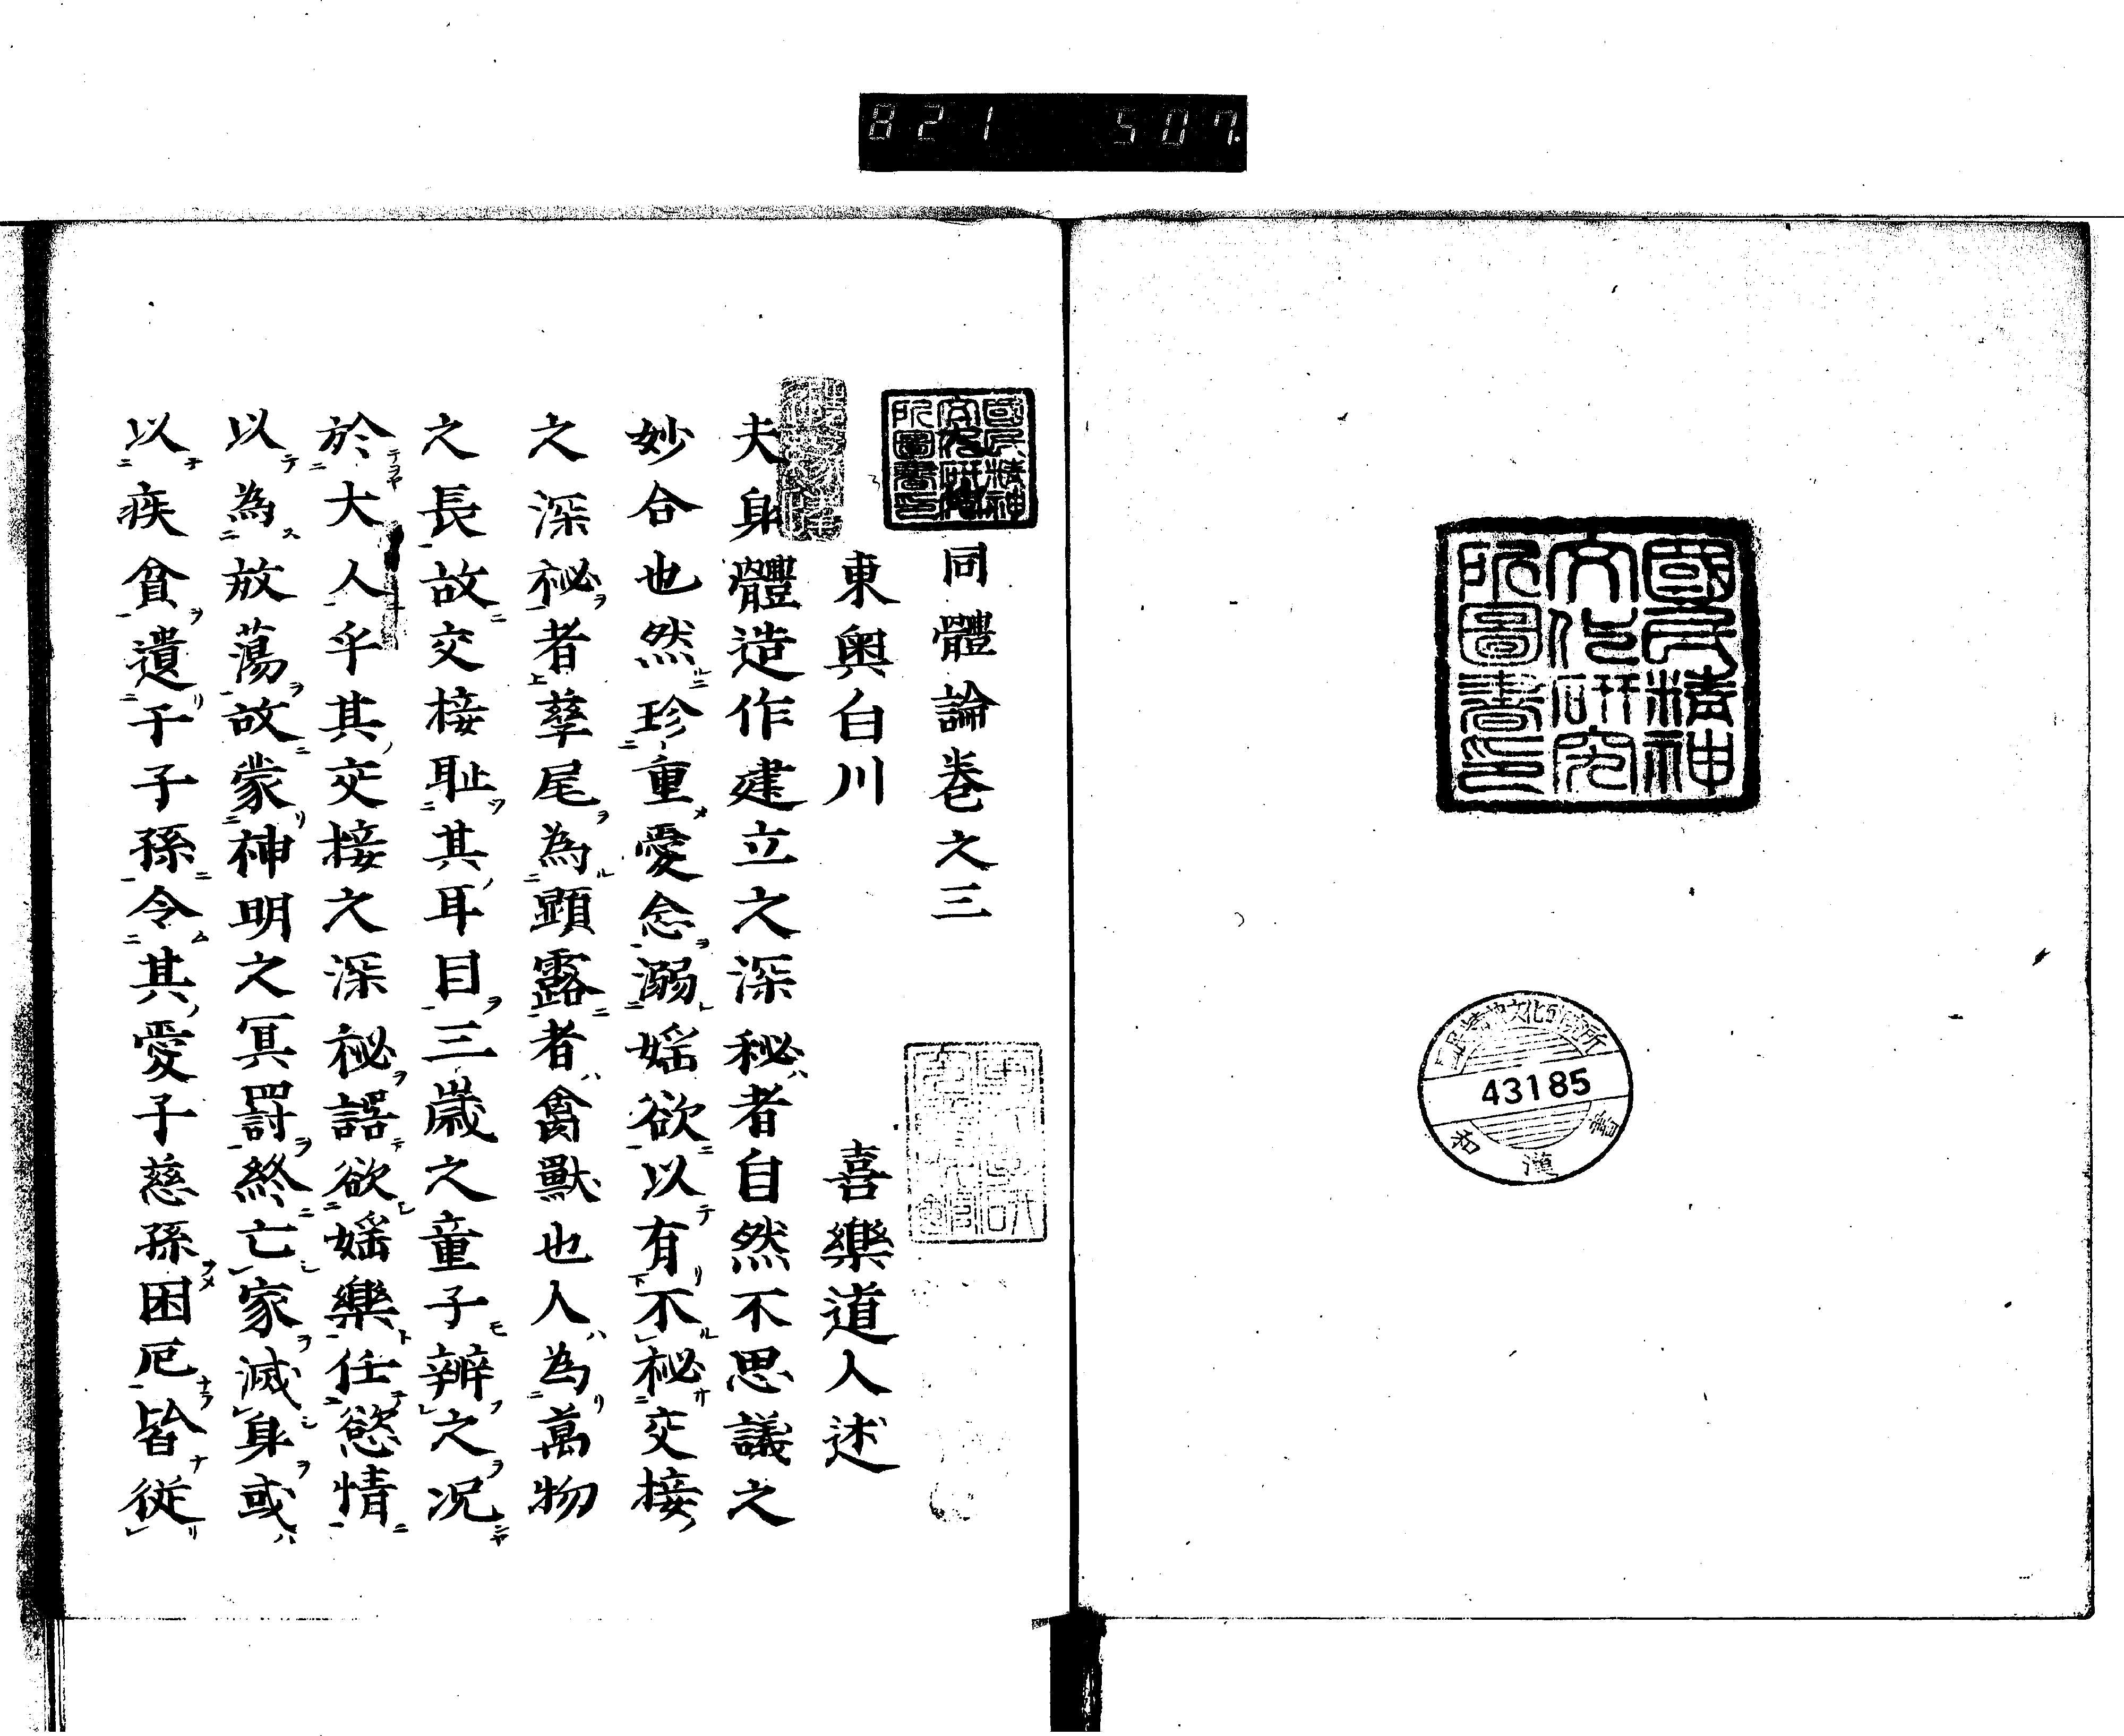 821 507.
國民精神
文化研究
所圖書印
国民精神文化研究所
43185
和漢書
國民精神
文化研究
所圖書印
同體論巻之三
東奥白川 喜樂道人述
夫身體造作建立之深秘者自然不思議之
妙合也然珍重愛念溺婬欲以有不秘交接
之深秘者孳尾為顕露者禽獣也人為萬物
之長故交接耻其耳目三歳之童子辨之况
於大人乎其交接之深秘誤欲婬樂任慾情
以為放蕩故蒙神明之冥罸終亡家滅身或
以疾貧遺于子孫令其愛子慈孫困厄皆従